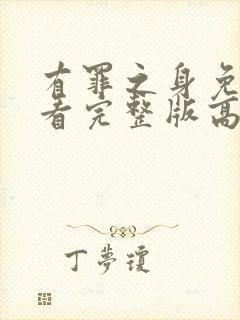 有罪之身免
看完整版高
丁夢瓊